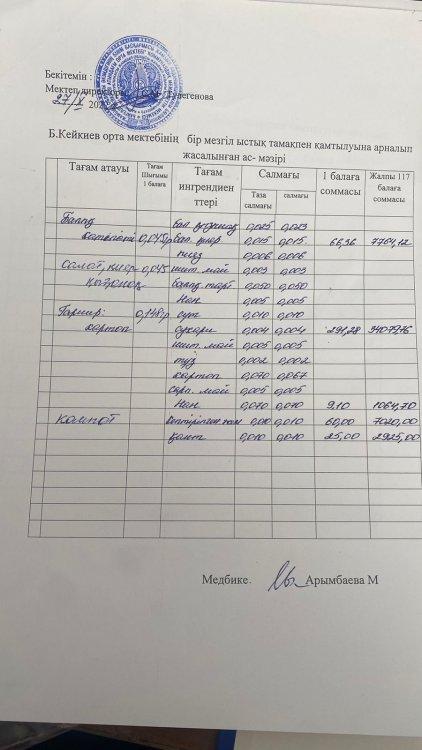 Бекітемін :
Мектеп директоры Тулегенова
27/X 202
Б.Кейкиев орта мектебінің бір мезгіл ыстық тамақпен қамтылуына арналып
жасалынған ас- мәзірі
Тағам атауы Тағам Шығымы 1 балаға Тағам ингрендиенттері Салмағы 1 балаға соммасы Жалпы 117 балаға соммасы
Таза салмағы салмағы
Балық 0,025 0,023
котлеті 0,045 0,015 0,015 66,36 7764,12
пияз 0,006 0,006
Салат, қияр 0,045 өсім. май 0,003 0,003
қызанақ балық 0,050 0,050
Нан 0,005 0,005
Гарнир: 0,148 сүт 0,010 0,010
картоп сухари 0,004 0,004 291,28 34079,76
өсім. май 0,005 0,005
тұз 0,002 0,002
картоп 0,070 0,067
сары. май 0,005 0,005
Нан 0,070 0,070 9,10 1064,70
Компот 0,010 60,00 7020,00
қант 0,010 0,010 25,00 2925,00
Медбике. Арымбаева М